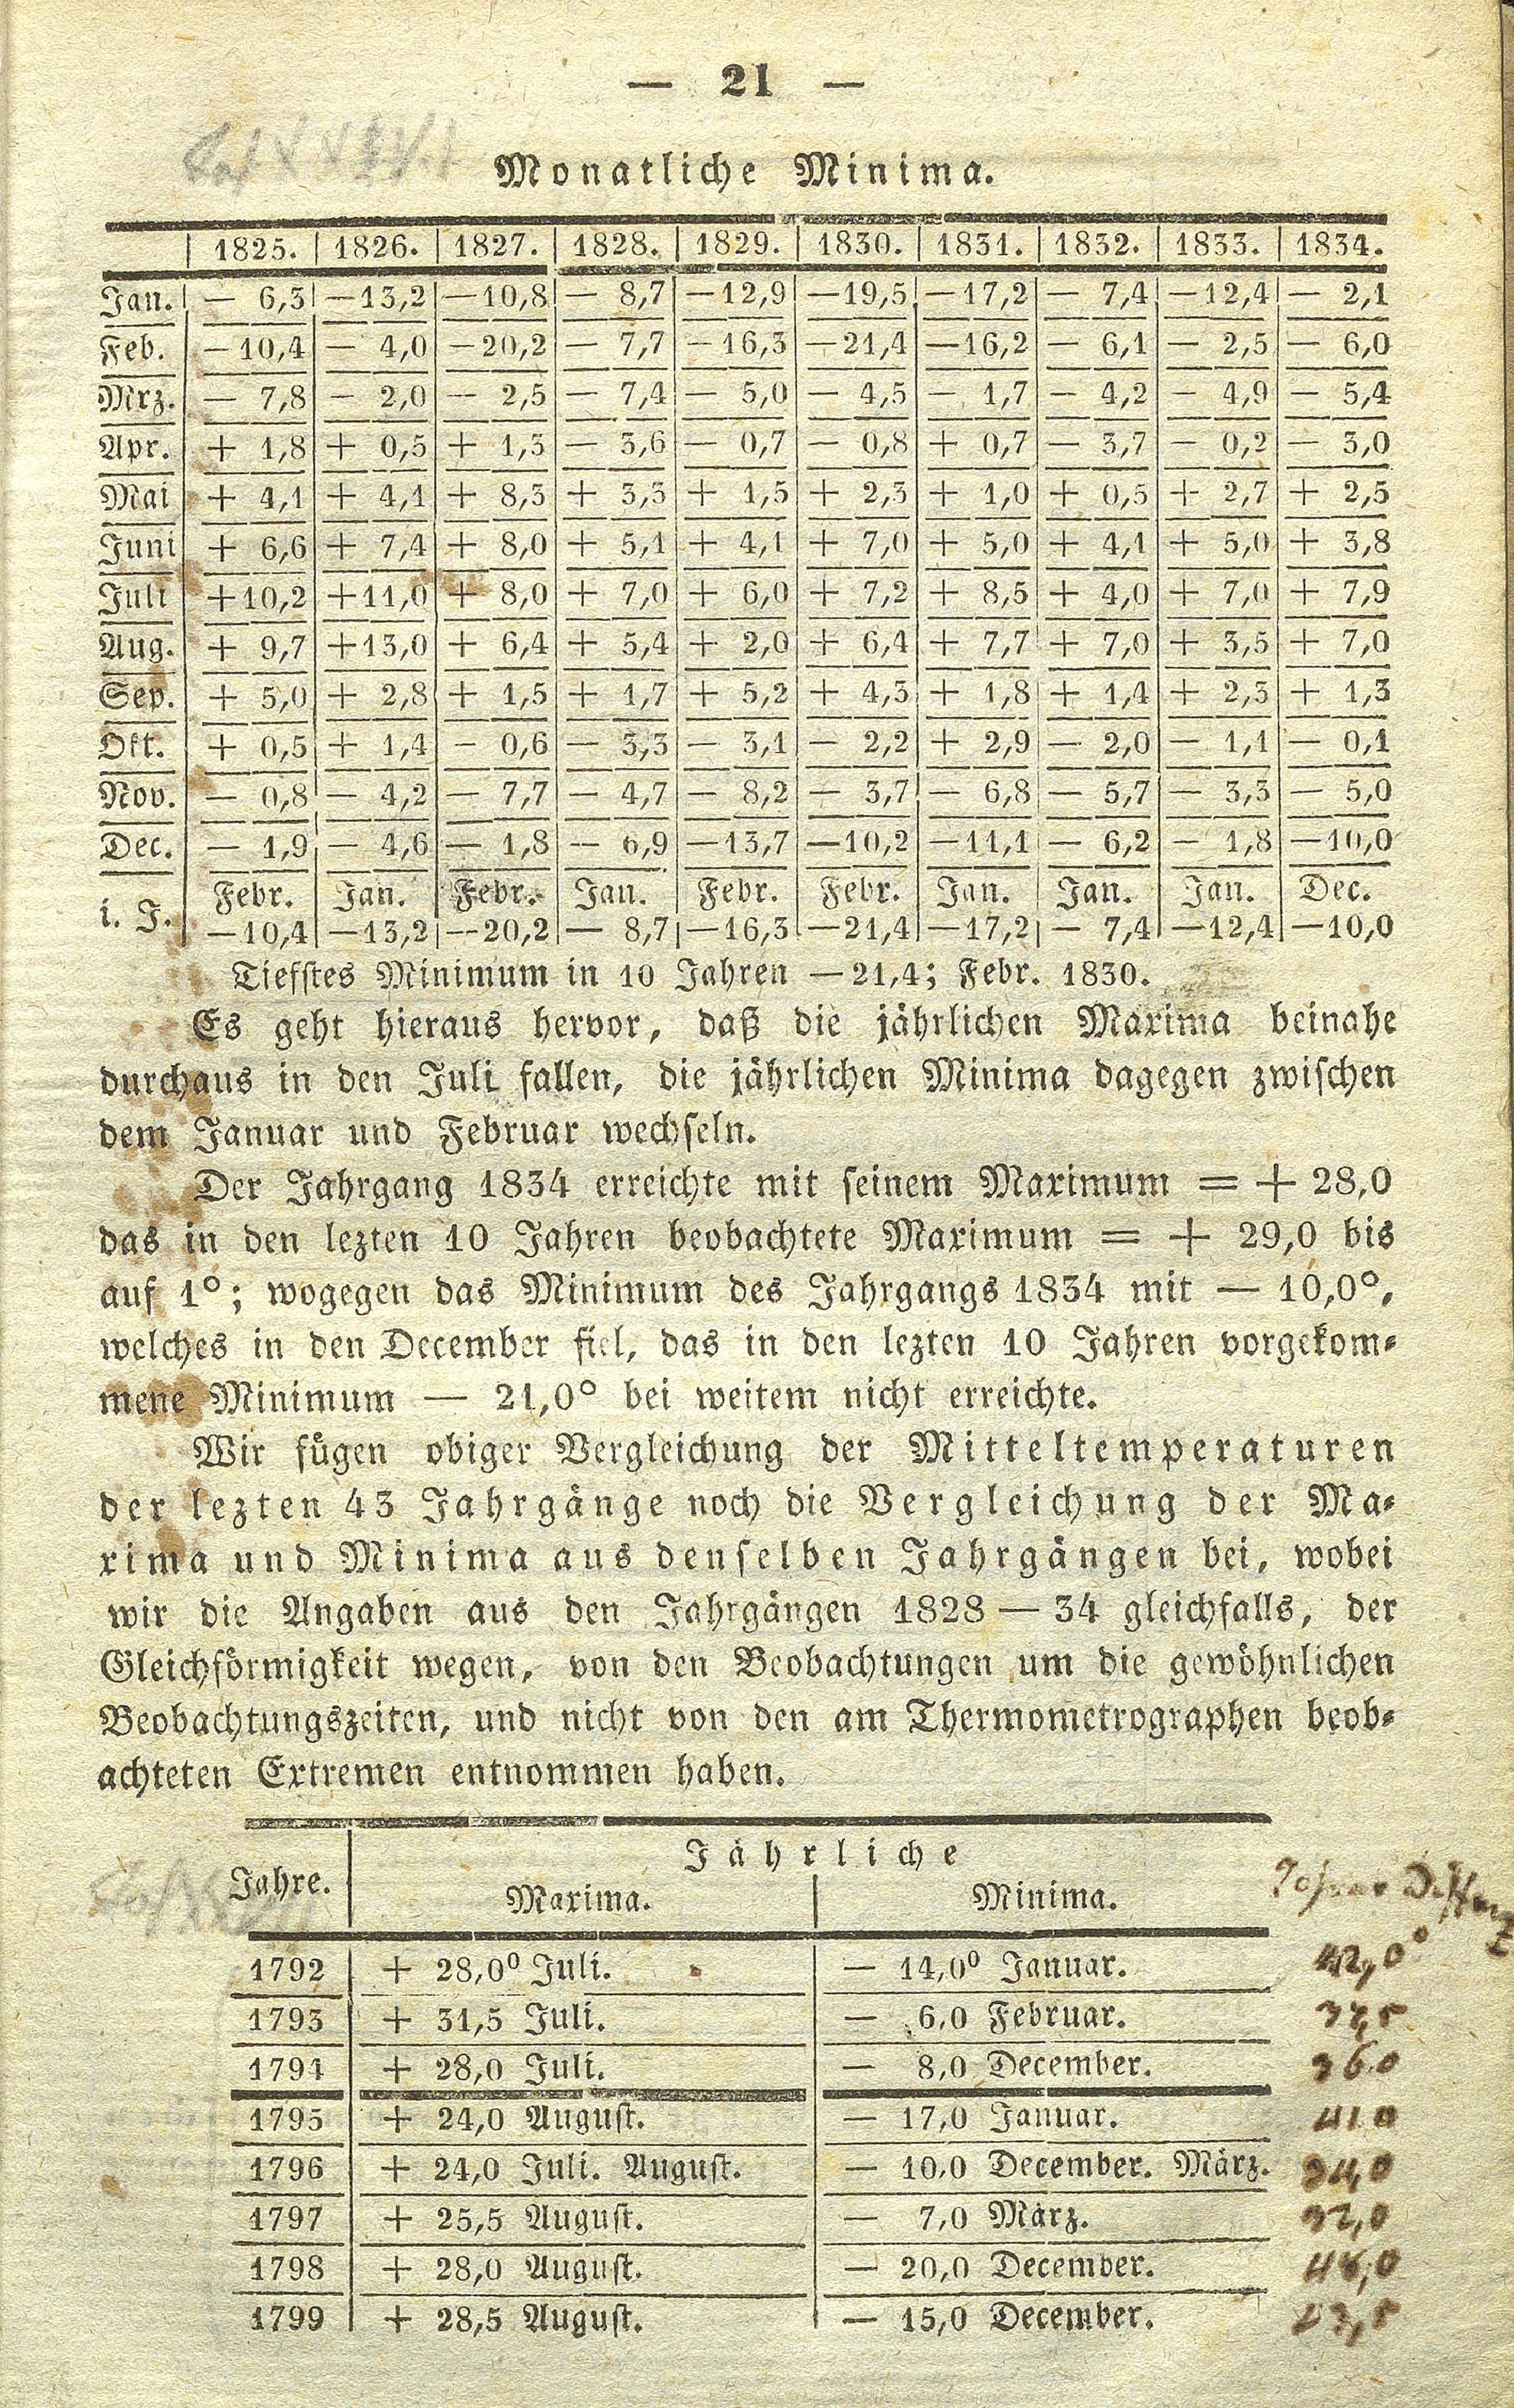 — 21 —
Monatliche Minima.
| 1825. | 1826. | 1827. | 1828. | 1829. | 1830. | 1831. | 1832. | 1833. | 1834.
Jan. | — 6,3 | —13,2 | —10,8 | — 8,7 | —12,9 | —19,5 | —17,2 | — 7,4 | —12,4 | — 2,1
Feb. | —10,4 | — 4,0 | —20,2 | — 7,7 | —16,3 | —21,4 | —16,2 | — 6,1 | — 2,5 | — 6,0
Mrz. | — 7,8 | — 2,0 | — 2,5 | — 7,4 | — 5,0 | — 4,5 | — 1,7 | — 4,2 | — 4,9 | — 5,4
Apr. | + 1,8 | + 0,5 | + 1,3 | — 3,6 | — 0,7 | — 0,8 | + 0,7 | — 3,7 | — 0,2 | — 3,0
Mai | + 4,1 | + 4,1 | + 8,3 | + 3,3 | + 1,5 | + 2,3 | + 1,0 | + 0,5 | + 2,7 | + 2,5
Juni | + 6,6 | + 7,4 | + 8,0 | + 5,1 | + 4,1 | + 7,0 | + 5,0 | + 4,1 | + 5,0 | + 3,8
Juli | +10,2 | +11,0 | + 8,0 | + 7,0 | + 6,0 | + 7,2 | + 8,5 | + 4,0 | + 7,0 | + 7,9
Aug. | + 9,7 | +13,0 | + 6,4 | + 5,4 | + 2,0 | + 6,4 | + 7,7 | + 7,0 | + 3,5 | + 7,0
Sep. | + 5,0 | + 2,8 | + 1,5 | + 1,7 | + 5,2 | + 4,3 | + 1,8 | + 1,4 | + 2,3 | + 1,3
Okt. | + 0,5 | + 1,4 | — 0,6 | — 3,3 | — 3,1 | — 2,2 | + 2,9 | — 2,0 | — 1,1 | — 0,1
Nov. | — 0,8 | — 4,2 | — 7,7 | — 4,7 | — 8,2 | — 3,7 | — 6,8 | — 5,7 | — 3,3 | — 5,0
Dec. | — 1,9 | — 4,6 | — 1,8 | — 6,9 | —13,7 | —10,2 | —11,1 | — 6,2 | — 1,8 | —10,0
i. J. | Febr. | Jan. | Febr. | Jan. | Febr. | Febr. | Jan. | Jan. | Jan. | Dec.
—10,4 | —13,2 | —20,2 | — 8,7 | —16,3 | —21,4 | —17,2 | — 7,4 | —12,4 | —10,0
Tiefstes Minimum in 10 Jahren —21,4; Febr. 1830.
Es geht hieraus hervor, daß die jährlichen Maxima beinahe
durchaus in den Juli fallen, die jährlichen Minima dagegen zwischen
dem Januar und Februar wechseln.
Der Jahrgang 1834 erreichte mit seinem Maximum = + 28,0
das in den lezten 10 Jahren beobachtete Maximum = + 29,0 bis
auf 1°; wogegen das Minimum des Jahrgangs 1834 mit — 10,0°,
welches in den December fiel, das in den lezten 10 Jahren vorgekom-
mene Minimum — 21,0° bei weitem nicht erreichte.
Wir fügen obiger Vergleichung der Mitteltemperaturen
der lezten 43 Jahrgänge noch die Vergleichung der Ma-
xima und Minima aus denselben Jahrgängen bei, wobei
wir die Angaben aus den Jahrgängen 1828 — 34 gleichfalls, der
Gleichförmigkeit wegen, von den Beobachtungen um die gewöhnlichen
Beobachtungszeiten, und nicht von den am Thermometrographen beob-
achteten Extremen entnommen haben.
Jahre. | Jährliche
Maxima. | Minima.
1792 | + 28,0° Juli. | — 14,0° Januar. 42,0°
1793 | + 31,5 Juli. | — 6,0 Februar. 37,5
1794 | + 28,0 Juli. | — 8,0 December. 36.0
1795 | + 24,0 August. | — 17,0 Januar. 41 0
1796 | + 24,0 Juli. August. | — 10,0 December. März. 34,0
1797 | + 25,5 August. | — 7,0 März. 32,0
1798 | + 28,0 August. | — 20,0 December. 48,0
1799 | + 28,5 August. | — 15,0 December. 43,5